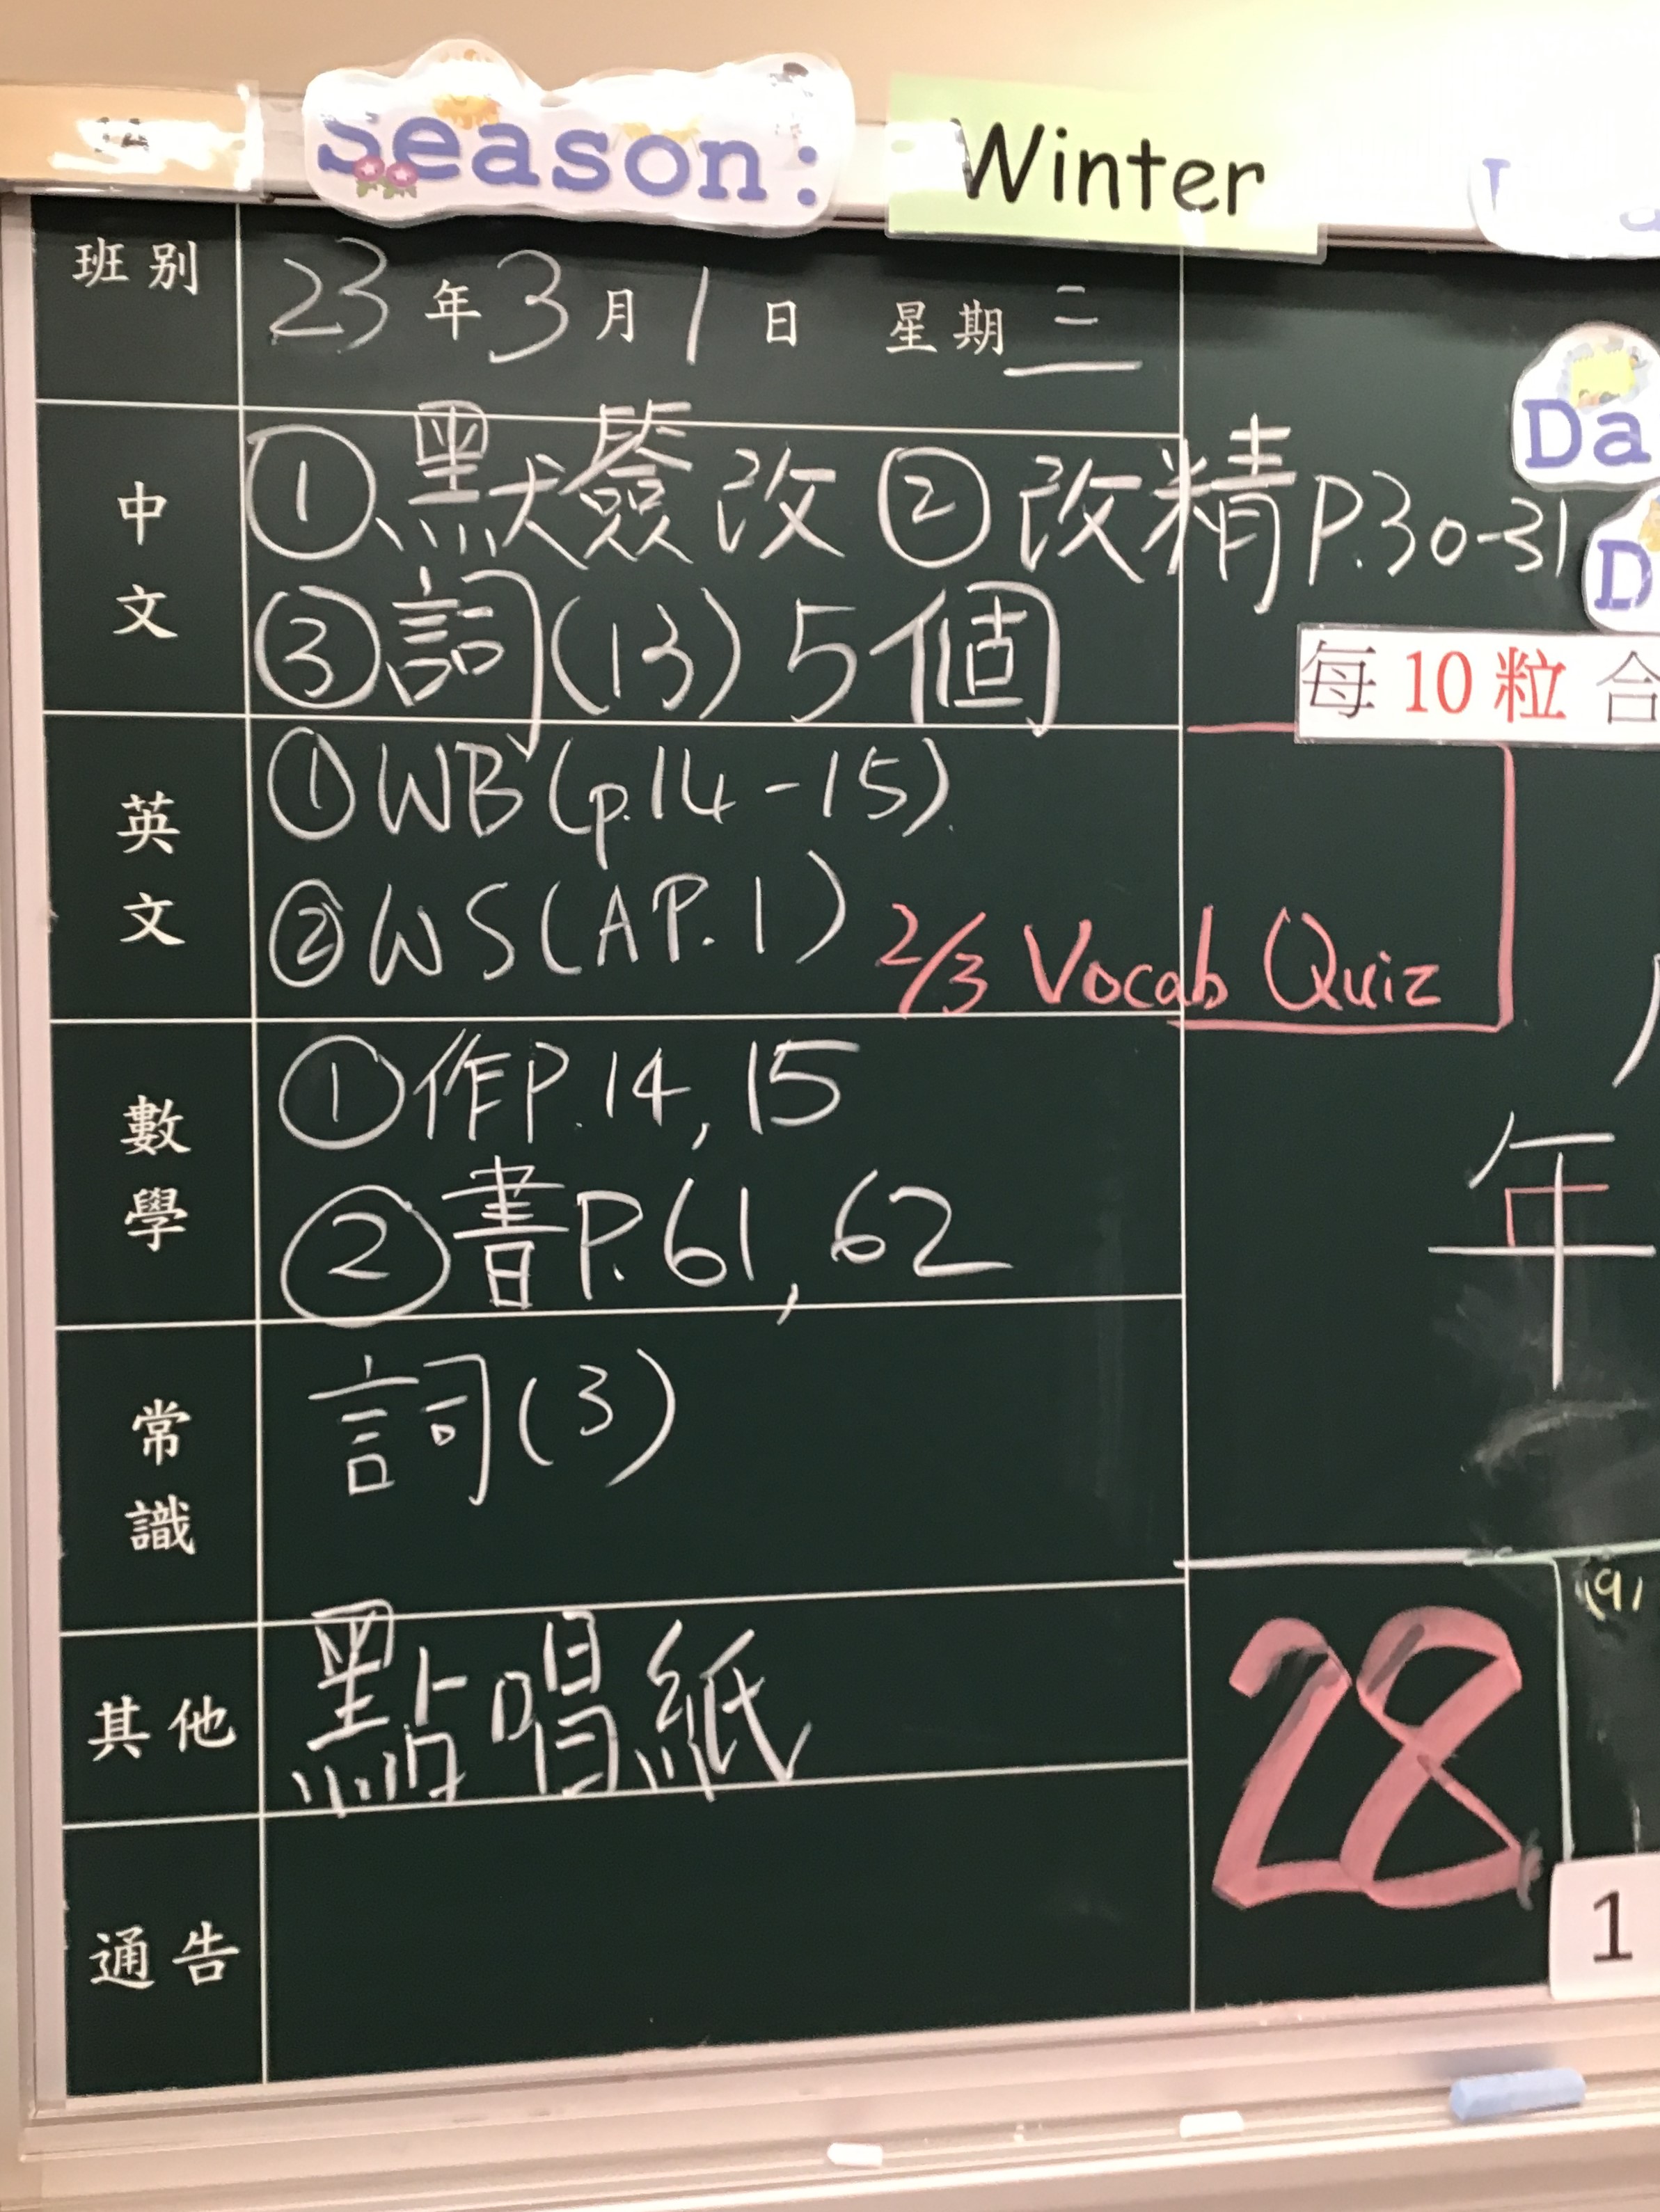 Season: Winter
班別 23年3月1日 星期三
中文 ①默簽改 ②改精P.30-31
③詞(13)5個
每10粒合
英文 ①WB(p.14-15)
②WS(AP.1) 2/3 Vocab Quiz
數學 ①作P.14,15
②書P.61,62
年
常識 詞(3)
其他 點唱紙
28
(9)
通告
1